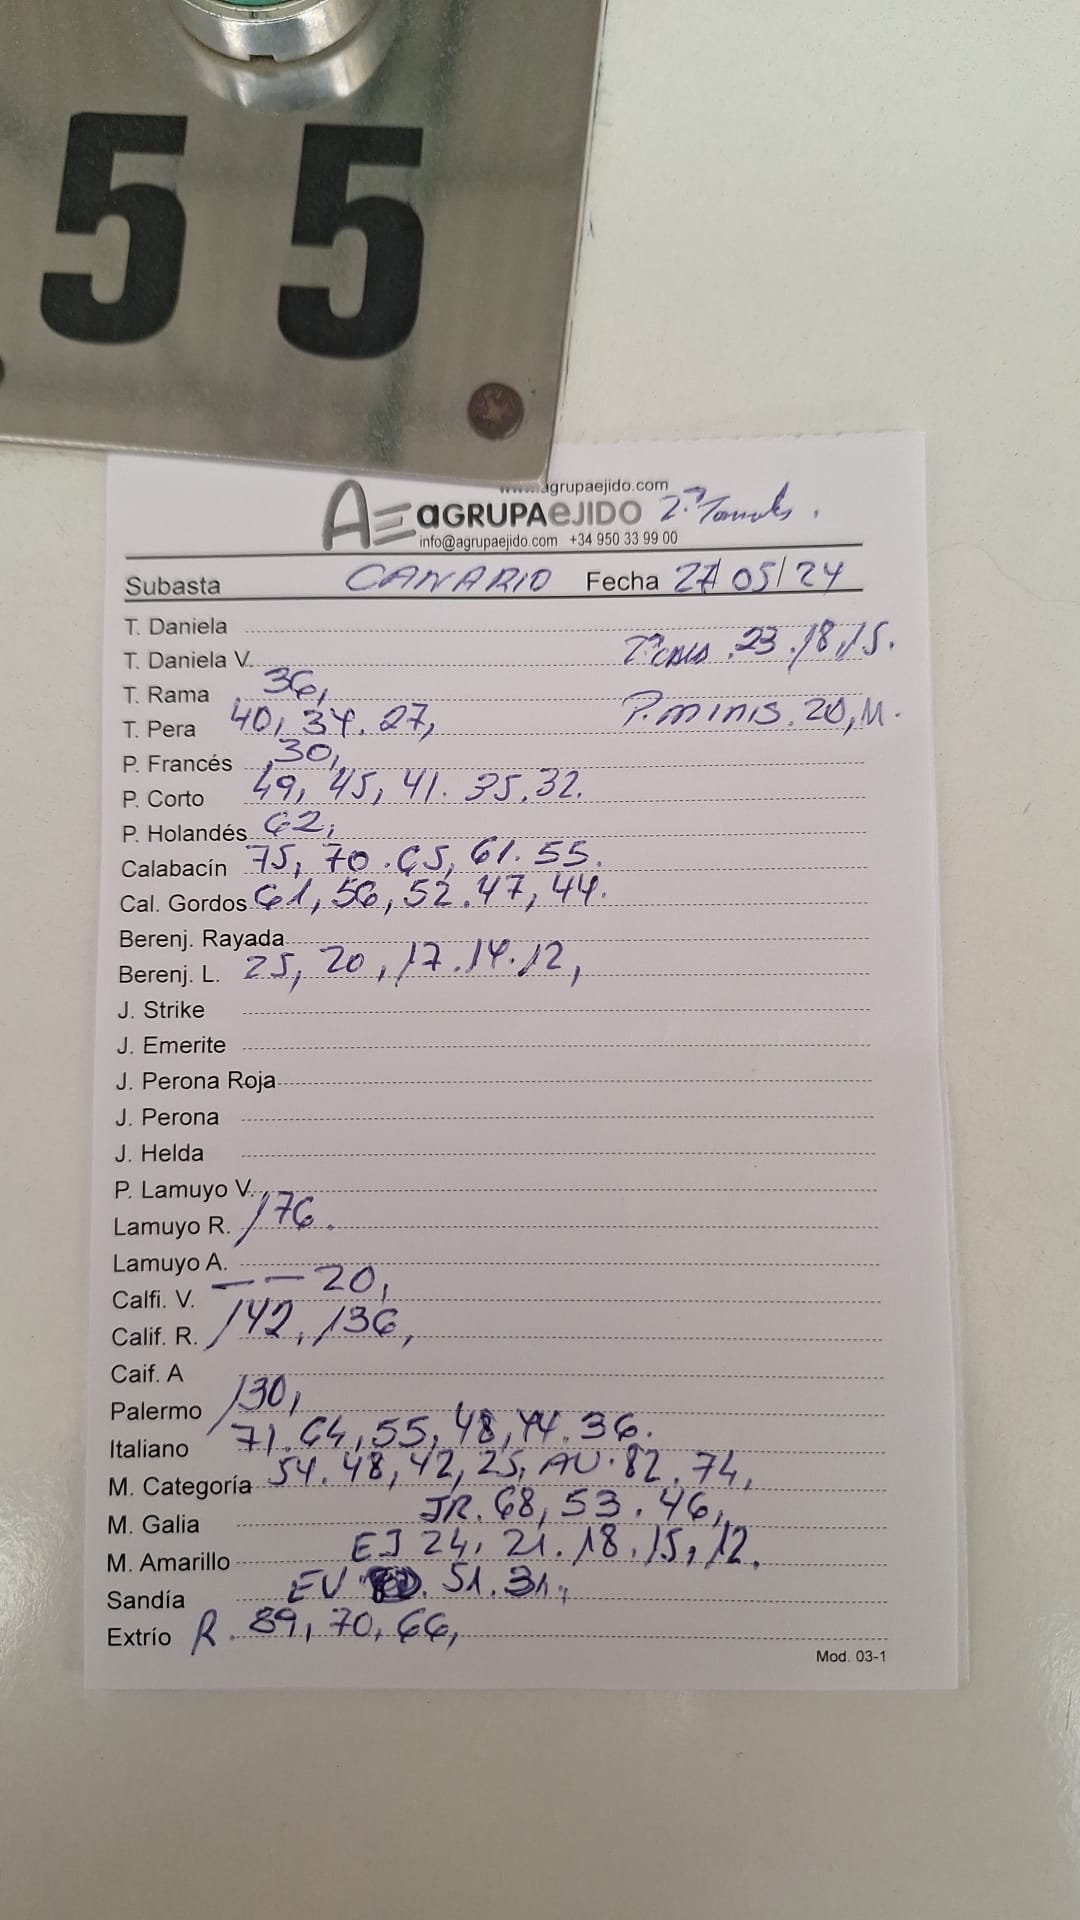 55
www.agrupaejido.com
AE aGRUPAeJIDO 2ª
info@agrupaejido.com +34 950 33 99 00
Subasta CANARIO Fecha 27/05/24
T. Daniela
T. Daniela V. 23.18.15.
T. Rama 36,
T. Pera 40, 34. 27, P. MINIS. 20, 11.
P. Francés 30,
P. Corto 49, 45, 41. 35, 32.
P. Holandés 62,
Calabacín 75, 70. 65, 61. 55.
Cal. Gordos 61, 56, 52. 47, 44.
Berenj. Rayada
Berenj. L. 25, 20, 17. 14. 12,
J. Strike
J. Emerite
J. Perona Roja
J. Perona
J. Helda
P. Lamuyo V.
Lamuyo R. 176.
Lamuyo A.
Calfi. V. — — 20,
Calif. R. 142, 136,
Caif. A
Palermo 130,
Italiano 71. 64, 55, 48, 44. 36.
M. Categoría 54. 48, 42, 25, AU. 82. 74,
M. Galia JR. 68, 53. 46,
M. Amarillo EJ 24, 21. 18. 15, 12.
Sandía EV 51. 31,
Extrío R. 89, 70, 66,
Mod. 03-1